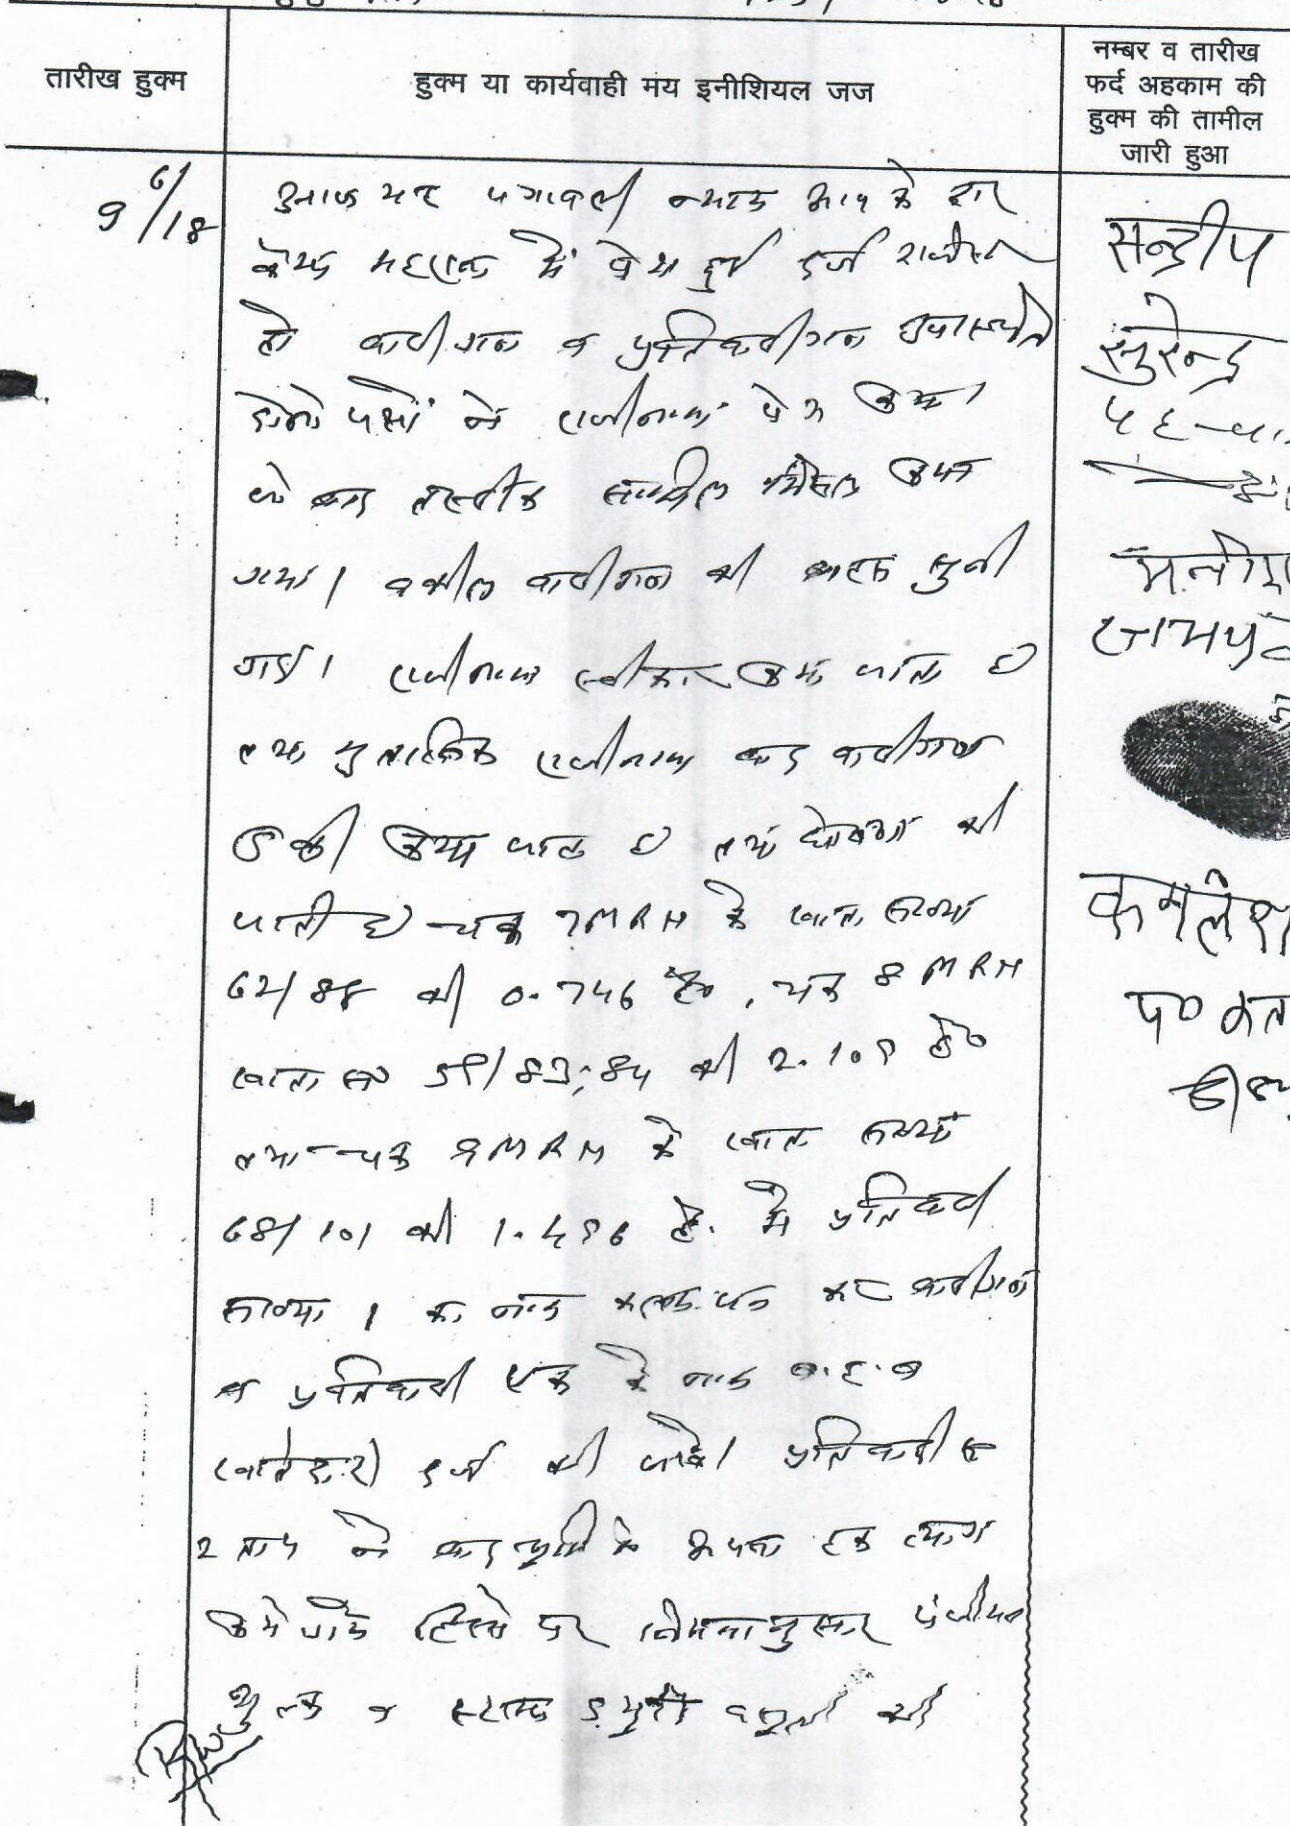 तारीख हुक्म
हुक्म या कार्यवाही मय इनीशियल जज
नम्बर व तारीख
फर्द अहकाम की
हुक्म की तामील
जारी हुआ
9/6/18
आज यह पत्रावली न्याय आपके द्वार
कैम्प में पेश हुई दर्ज
हो वादीगण व प्रतिवादीगण
दोनो पक्षों ने राजीनामा पेश किया
जो बाद तस्दीक शामिल मिसल किया
गया। वकील वादीगण की बहस सुनी
गई। राजीनामा स्वीकार किया जाता है
तथा मुताबिक राजीनामा वाद वादीगण
डिक्री किया जाता है तथा घोषणा की
जाती है चक 7 MRM के खाता संख्या
62/88 की 0.746 है०, चक 8 MRM
खाता स० 59/83,84 की 2.109 है०
तथा चक 9 MRM के खाता संख्या
68/101 की 1.496 है. मे प्रतिवादी
संख्या 1 का नाम कर वादीगण
व प्रतिवादी एक के नाम ब.ह.ब
खातेदारी दर्ज की जावे। प्रतिवादी स
2 ता 4 ने वाद भूमि मे अपना हक त्याग
किये गये हिस्से पर नियमानुसार पंजीयन
शुल्क व स्टाम्प ड्युटी वसूली की
सन्दीप
सुरेन्द्र
कमलेश